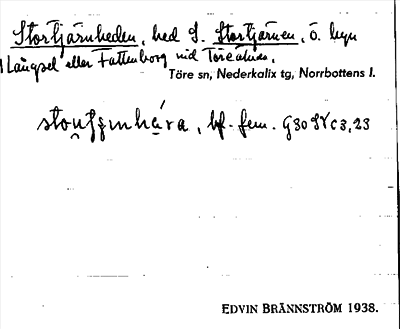 Stortjärnheden, hed S. Stortjärnen, ö. byn
Långsel eller Fattenborg vid Töreälven.
Töre sn, Nederkalix tg, Norrbottens l.
bf. fem. G30
EDVIN BRÄNNSTRÖM 1938.